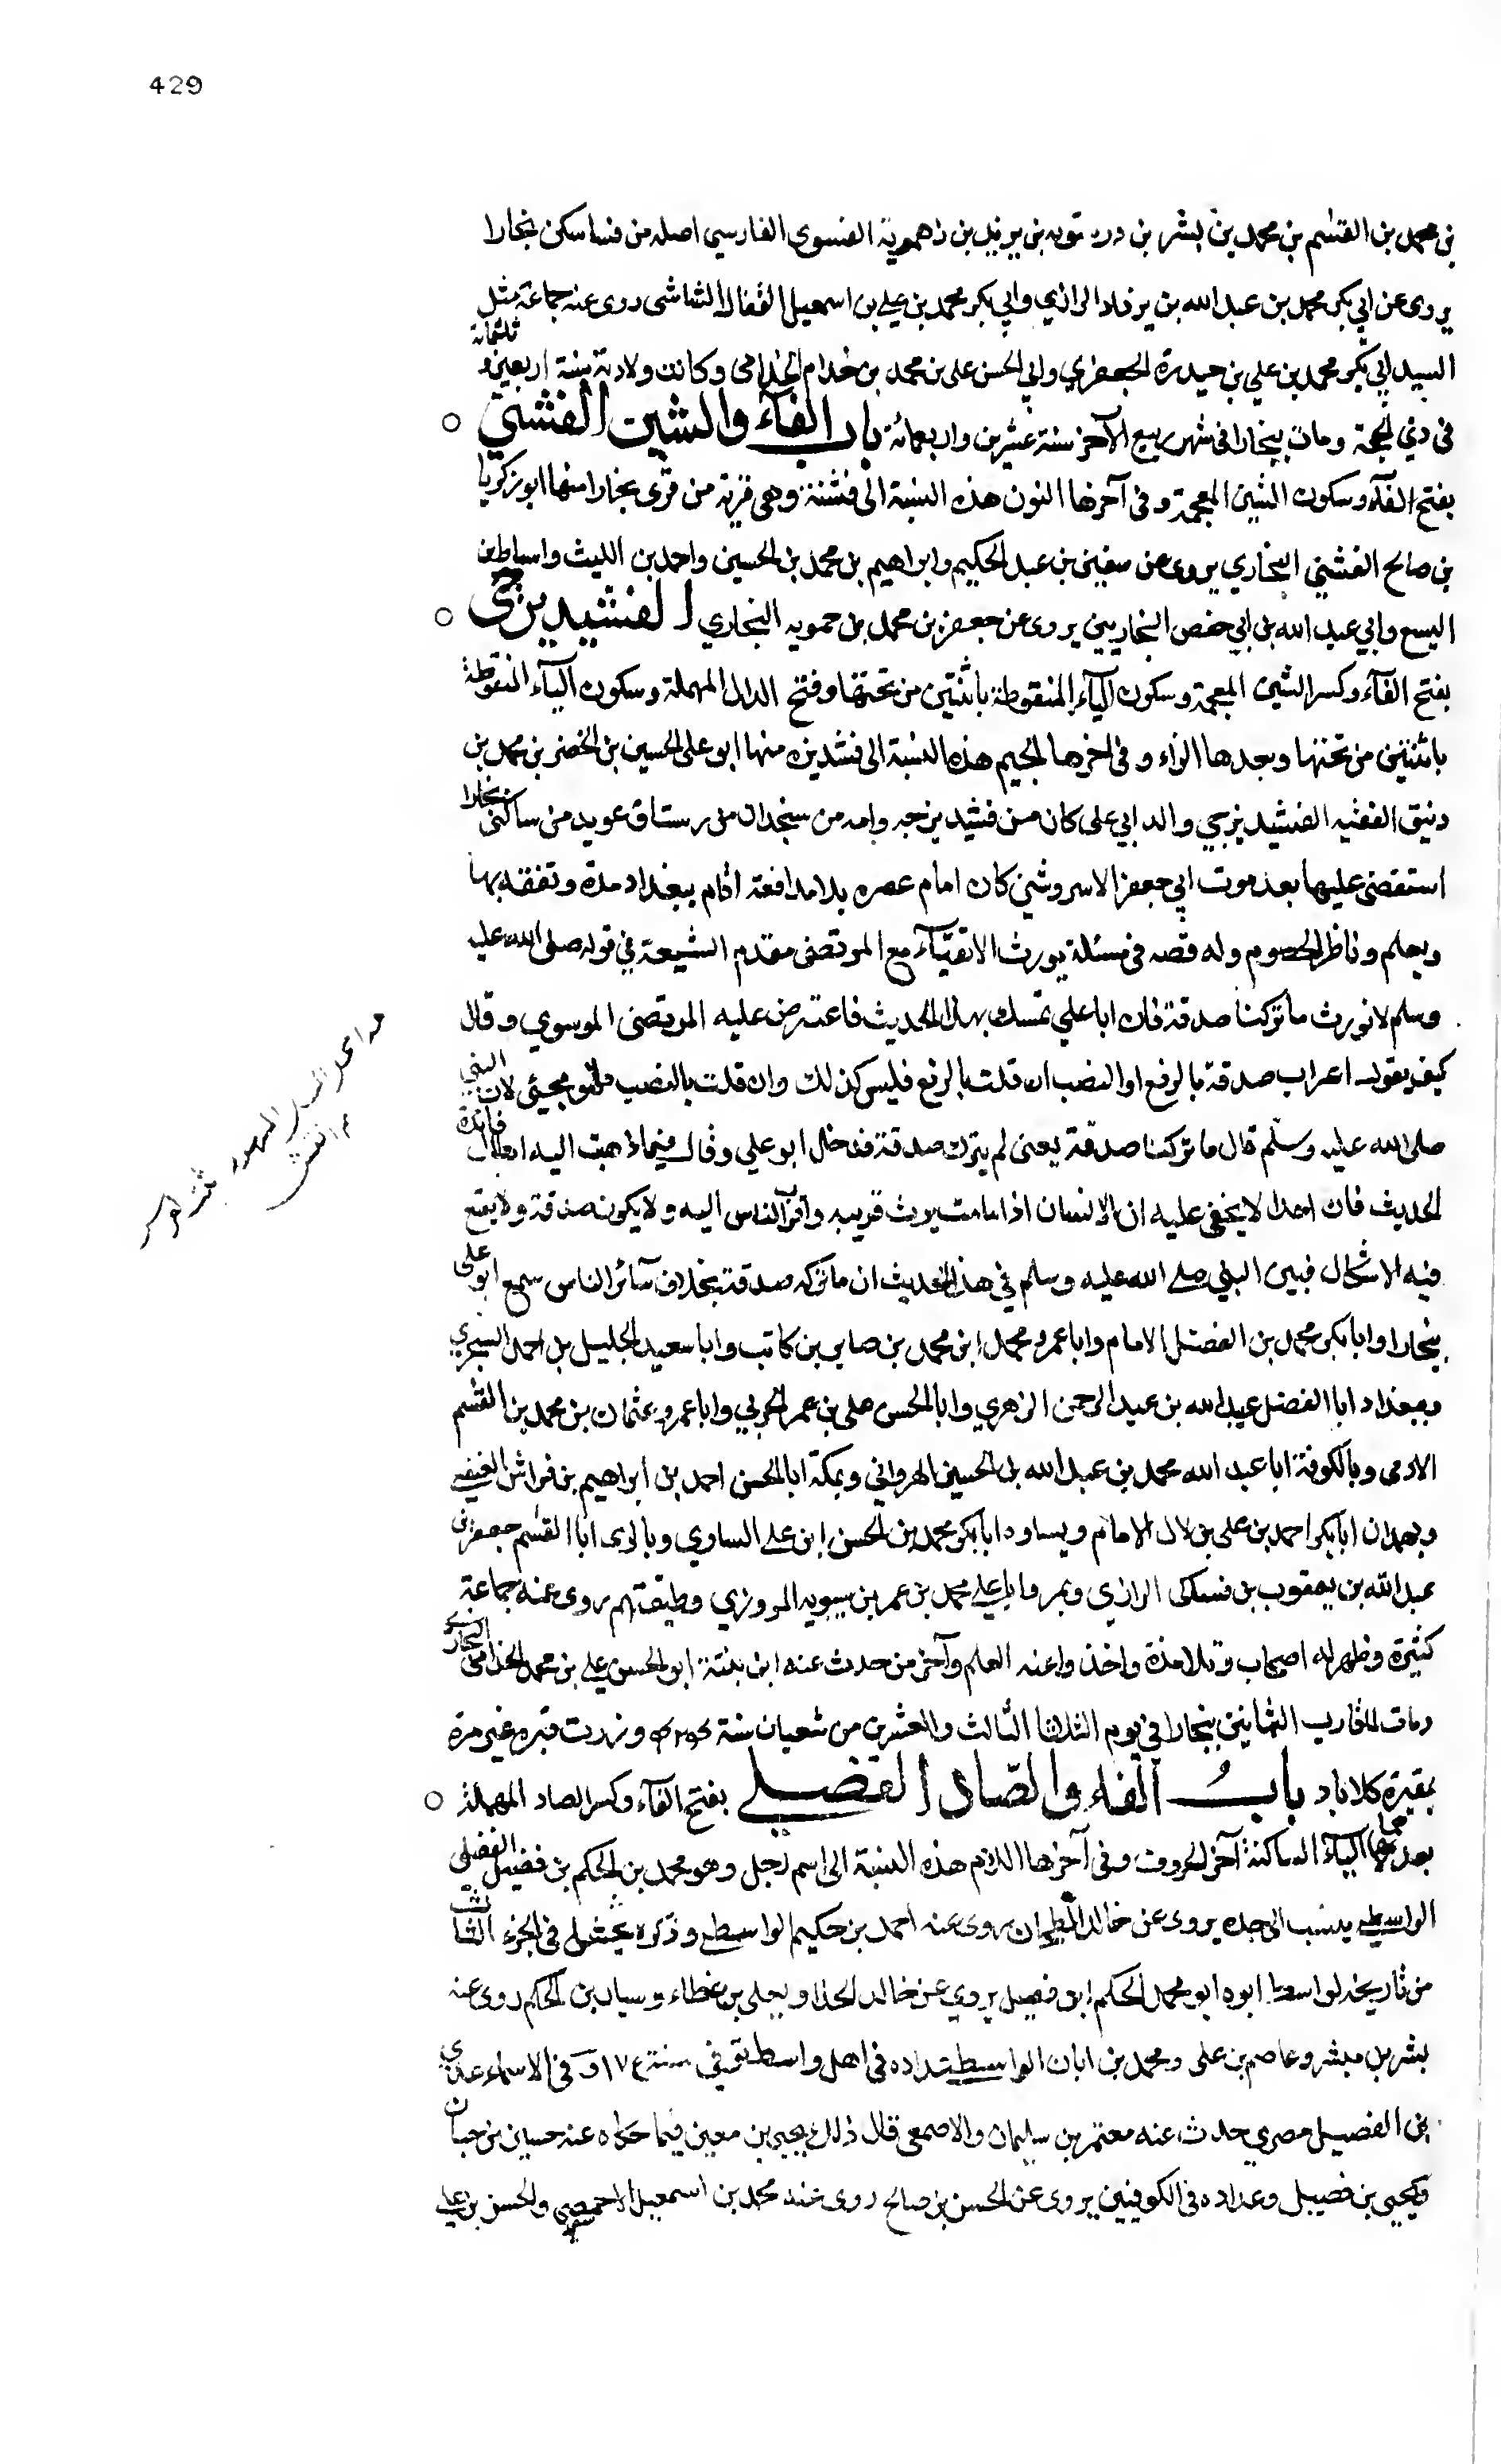 429
بن محمد بن القسم بن محمد بن بشر بن درستويه بن يزيد بن زاهمويه الفسوي الفارسي اصله من فسا سكن بخارا
يروى عن ابي بكر محمد بن عبد الله بن يزداد الرازي وابي بكر محمد بن علي بن اسمعيل القفال الشاشى روى عنه جماعة مثل
السيد ابي بكر محمد بن علي بن حيدرة الجعفري وابي الحسن على بن محمد بن خذام الخذامى وكانت ولادته سنة اربعين و ثلثمائة
فى ذي الحجة ومات ببخارا فى شهر ربيع الآخر سنة عشرين واربعمائة باب الفآء والشين الفشني
بفتح الفآء وسكون الشين المعجمة وفى آخرها النون هذه النسبة الى فشنة وهى قرية من قرى بخارا منها ابو زكريا
بن صالح الفشني البخاري يروى عن سفين بن عبد الحكيم وابراهيم بن محمد بن الحسين واحمد بن الليث واسباط بن
اليسع وابي عبد الله بن ابي حفص البخاريين يروى عن جعفر بن محمد بن حمويه البخاري الفشيديزجي
بفتح الفآء وكسر الشين المعجمة وسكون اليآء المنقوطة باثنتين من تحتها وفتح الدال المهملة وسكون اليآء المنقوطة
باثنتين من تحتها وبعدها الزاء وفى اخرها الجيم هذه النسبة الى فشديزه منها ابو على الحسين بن الخضر بن محمد بن
دنيق الفقيه الفشيديزجي والد ابي على كان من فشيديزجه وامه من سنجدان من رستاق عويد من ساكنى بخارا
استقضى عليها بعد موت ابي جعفر الاسروشني كان امام عصره بلا مدافعة اقام ببغداد مدة وتفقه بها
وبعلم وناظر الخصوم وله قصه فى مسئلة يورث الاتقيآء مع المرتضى مقدم الشيعة في قوله صلى الله عليه
وسلم لا نورث ما تركنا صدقة فان ابا علي تمسك بهذا الحديث فاعترض عليه المرتضى الموسوي وقال
كيف يقول اعراب صدقة بالرفع او النصب ان قلت بالرفع فليس كذلك وان قلت بالنصب فهو مجيئى لان النبي
صلى الله عليه وسلم قال ما تركنا صدقة يعنى لم يترك صدقة فدخل ابو علي وقال فيما ذهبت اليه ابطال فائدة
الحديث فان احدا لا يخفى عليه ان الانسان اذا مات يرث قريبه واقرب الناس اليه ولا يكون صدقة ولا يقع
فيه الاشكال فبين النبي صلى الله عليه وسلم في هذا الحديث ان ما تركه صدقة بخلاف سآئر الناس سمع ابو على
ببخارا وابا بكر محمد بن الفضل الامام وابا عمرو محمد ابن محمد بن صابر بن كاتب وابا سعيد الجليل بن احمد السجزي
وببغداد ابا الفضل عبيد الله بن عبد الرحمن الزهري وابا الحسن على بن عمر الحربي وابا عمرو عثمان بن محمد بن القسم
الادمى وبالكوفة ابا عبد الله محمد بن عبد الله بن الحسين الهرواني وبمكة ابا الحسن احمد بن ابراهيم بن فراش العبقسي
وبهمدان ابا بكر احمد بن على بن لال الامام وبساوه ابا بكر محمد بن الحسن ابن على الساوي وبالرى ابا القسم جعفر بن
عبد الله بن يعقوب بن فسكى الرازي وبمرو ابا علي محمد بن عمر بن سيبويه المروزي وطبقتهم روى عنه جماعة
كثيرة وظهر له اصحاب وتلامذة واخذوا عنه العلم وآخر من حدث عنه ابن بنته ابو الحسن علي بن محمد الخذامى البخاري
ومات لما قارب الثمانين ببخارا في يوم الثلثا الثالث والعشرين من شعبان سنة وزرت قبره غير مرة
بمقبرة كلاباد باب الفاء والصاد الفصيلي بفتح الفآء وكسر الصاد المهملة
بعدها اليآء الساكنة آخر الحروف وفى آخرها اللام هذه النسبة الى اسم رجل وهو محمد بن الحكم بن فصيل الفصيلى
الواسطي ينسب الى جده يروى عن خالد الطحان روى عنه احمد بن حكيم الواسطي وذكره بحشل فى الجزء الثالث
من تاريخ لواسط ابوه ابو محمد الحكم ابن فصيل يروي عن خالد الحذا ويعلى بن عطاء وسيار بن الحكم روى عنه
بشر بن مبشر وعاصم بن على ومحمد بن ابان الواسطي عداده فى اهل واسط توفى سنة ١٧٤ و فى الاسماء عدي
بن الفصيل مصري حدث عنه معتمر بن سليمان والاصمعى قال ذلك يحيى بن معين فيما حكاه عنه حسين بن حبان
ويحيى بن فصيل وعداده فى الكوفيين يروى عن الحسن بن صالح روى عنه محمد بن اسمعيل الاحمسي والحسن بن علي